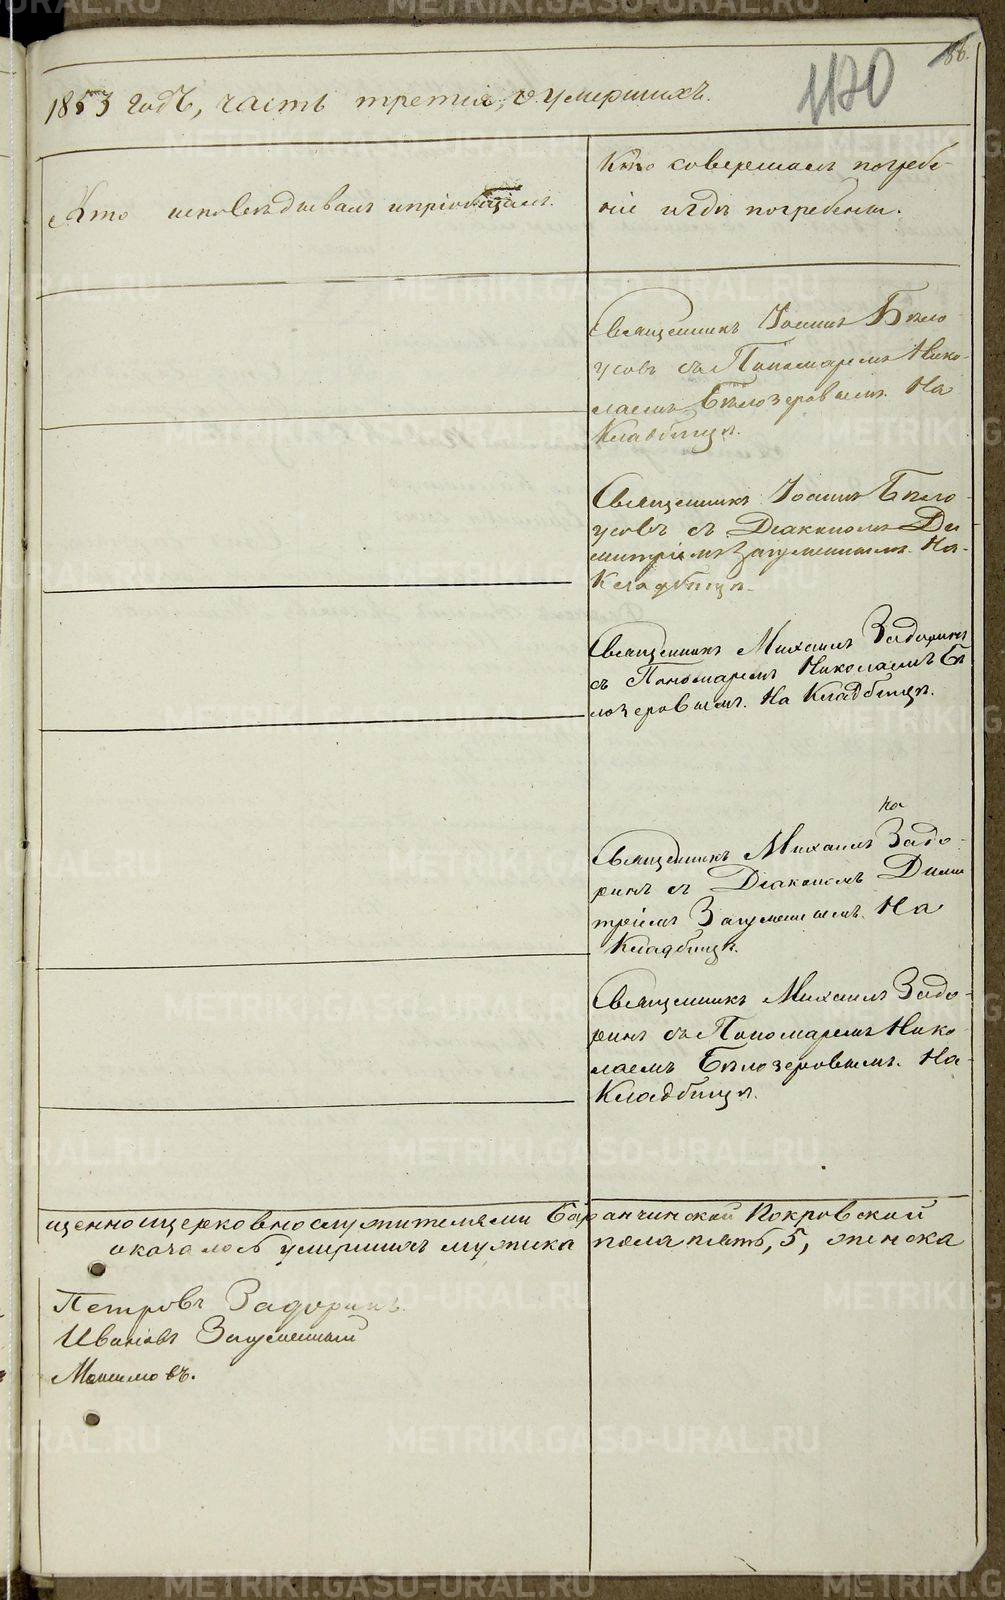 86.
1120
1853 годъ, часть третия, о умершихъ.
Кто исповѣдывалъ и пріобщалъ.
Кто совершалъ погребе-
ніе и гдѣ погребены.
Священникъ Іоаннъ Бѣло
усовъ съ Пономаремъ Нико-
лаемъ Бѣлозеровымъ. На
Кладбищѣ.
Священникъ Іоаннъ Бѣло-
усовъ съ Діакономъ Ди
митріемъ Загуменнымъ. На-
Кладбищѣ.
Священникъ Михаилъ Задоринъ
съ Пономаремъ Николаемъ Бѣ
лозеровымъ. На Кладбищѣ.
на
Священникъ Михаилъ Задо-
ринъ съ Діакономъ Дими
тріемъ Загуменнымъ. На
Кладбищѣ.
Священникъ Михаилъ Задо-
ринъ съ Пономаремъ Нико-
лаемъ Бѣлозеровымъ. На-
Кладбищѣ.
щенноцерковнослужителями Баранчинской Покровской
оказалось умершихъ мужска пола пять, 5, женска
Петровъ Задоринъ.
Ивановъ Загуменный
METRIKI.GASO-URAL.RU